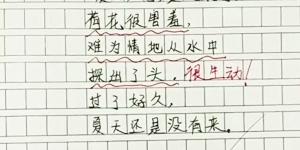 荷花很害羞,
难为情地从水中
探出了头。很生动!
过了好久,
夏天还是没有来。